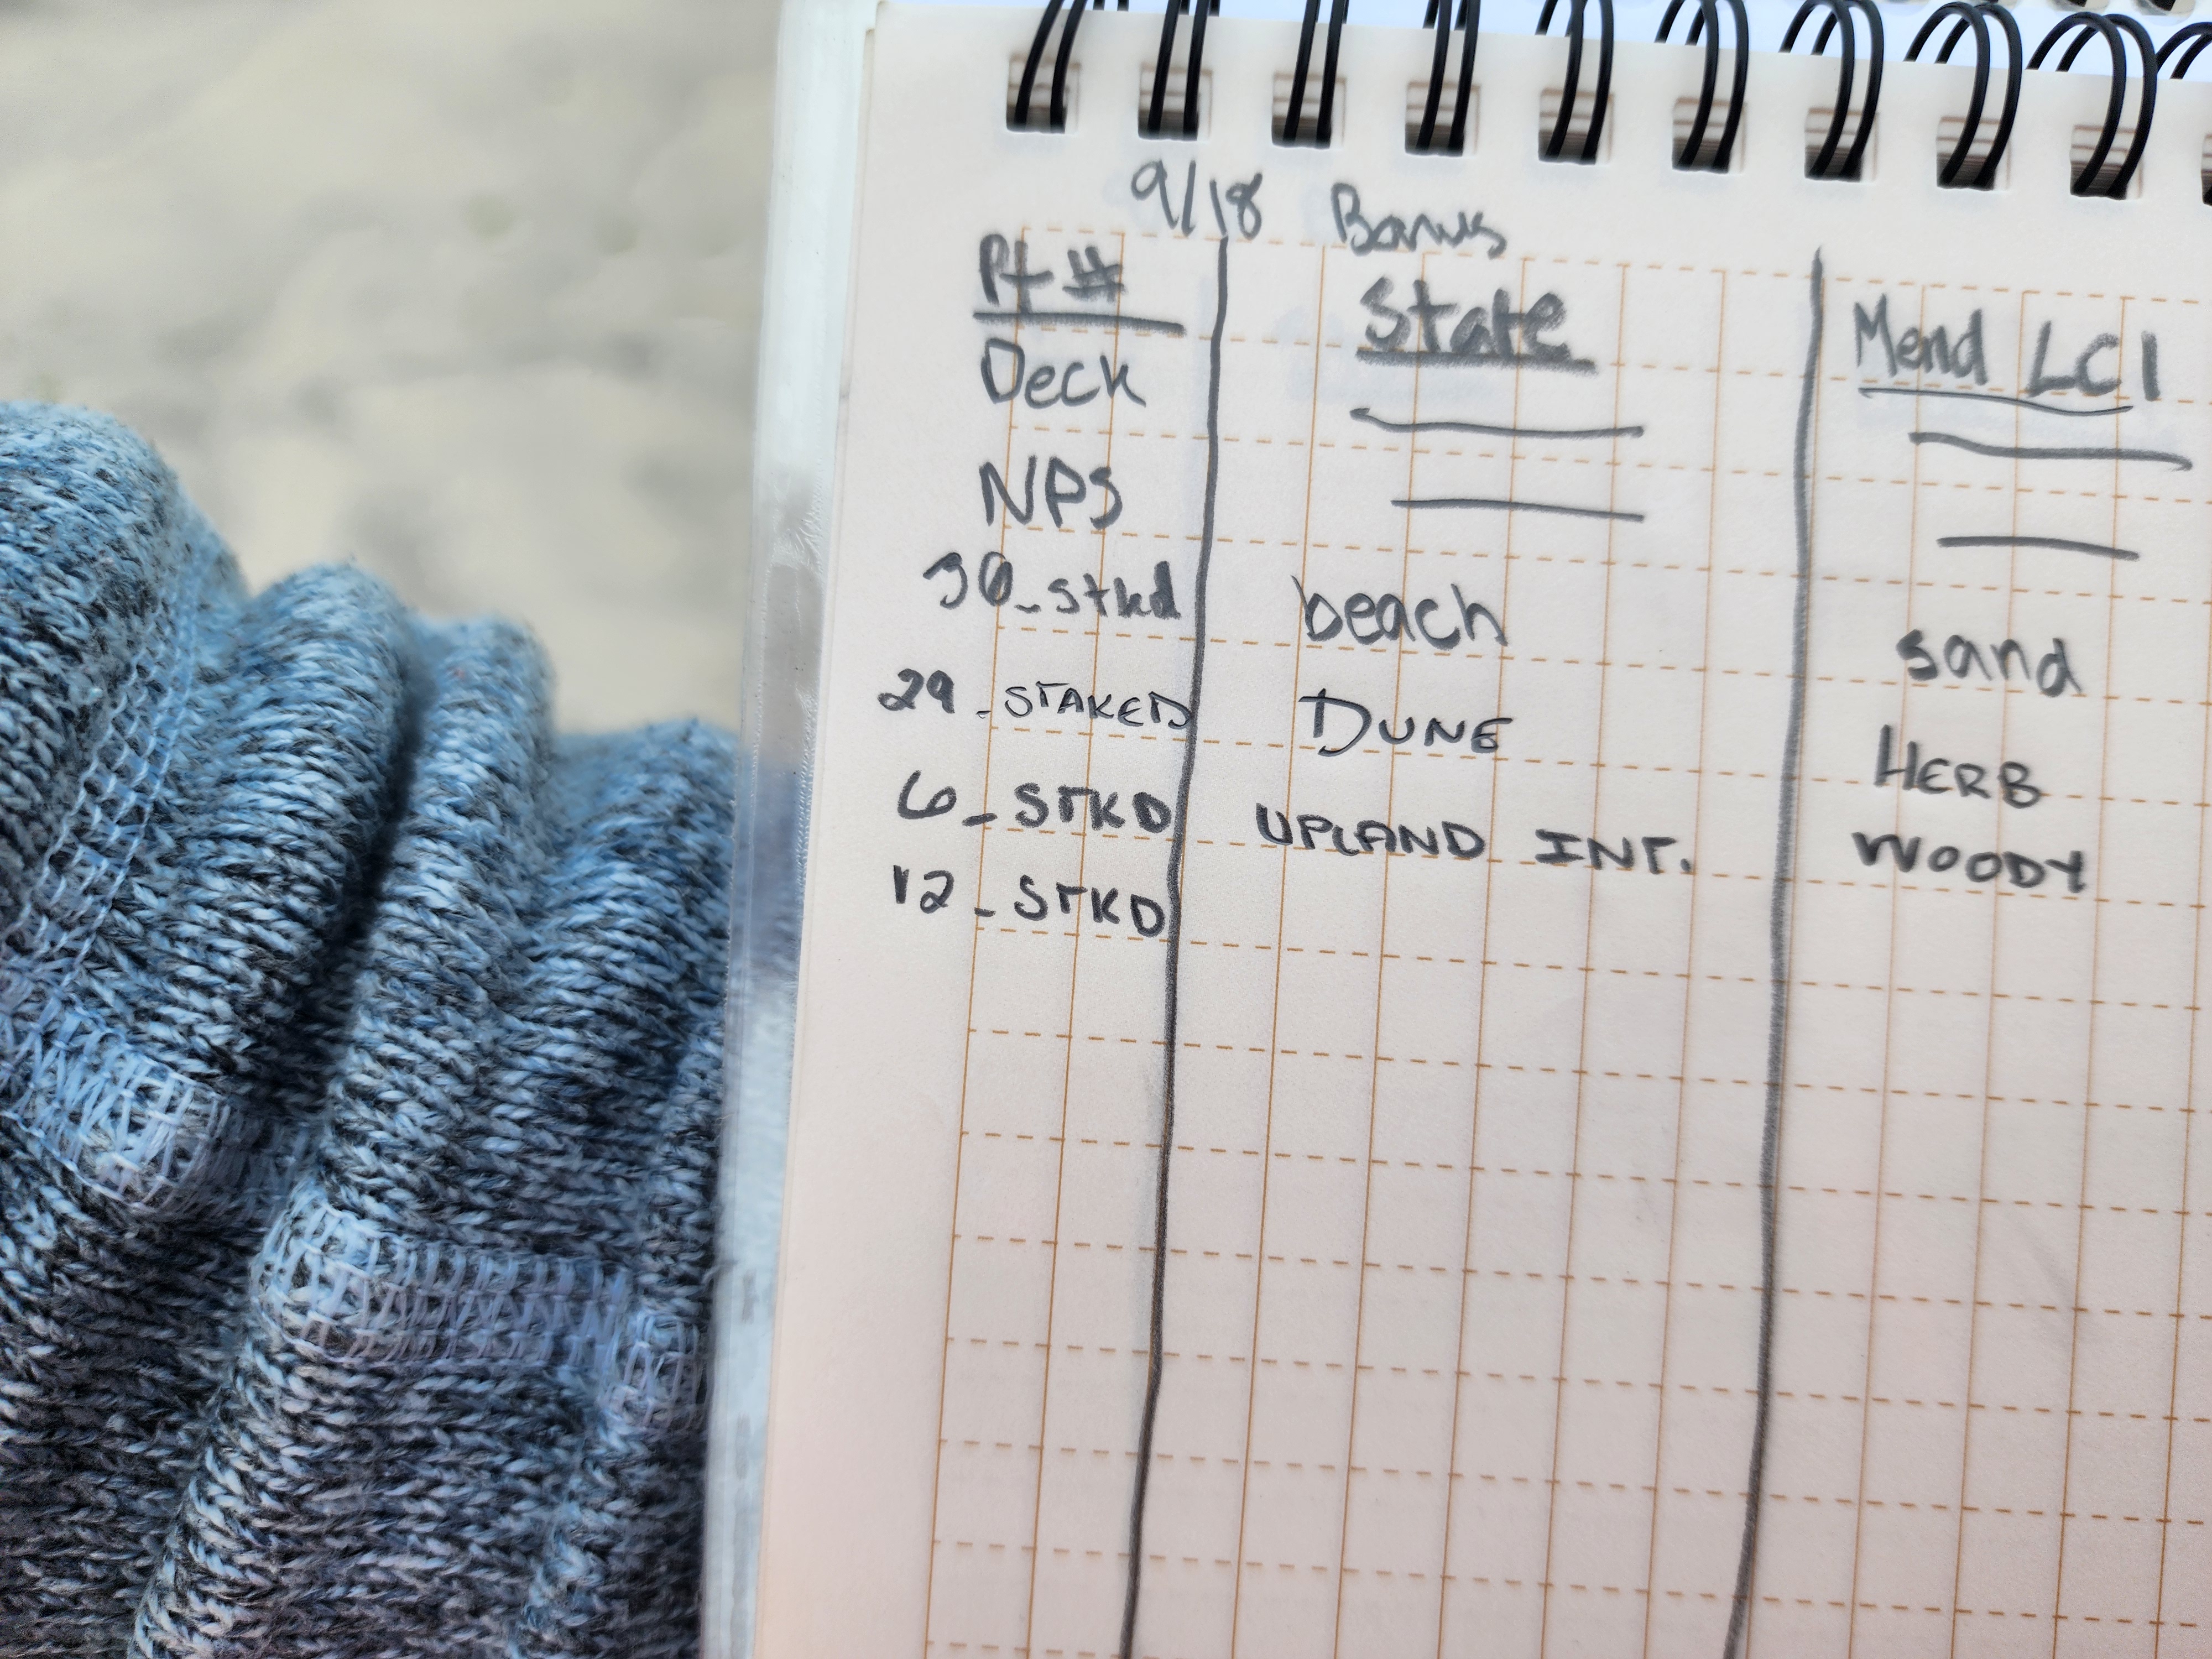 9/18 Bonus
Pt # State Mend LCI
Deck
NPS
30_stkd beach sand
29_STAKED DUNE HERB
6_STKD UPLAND INT. WOODY
12_STKD